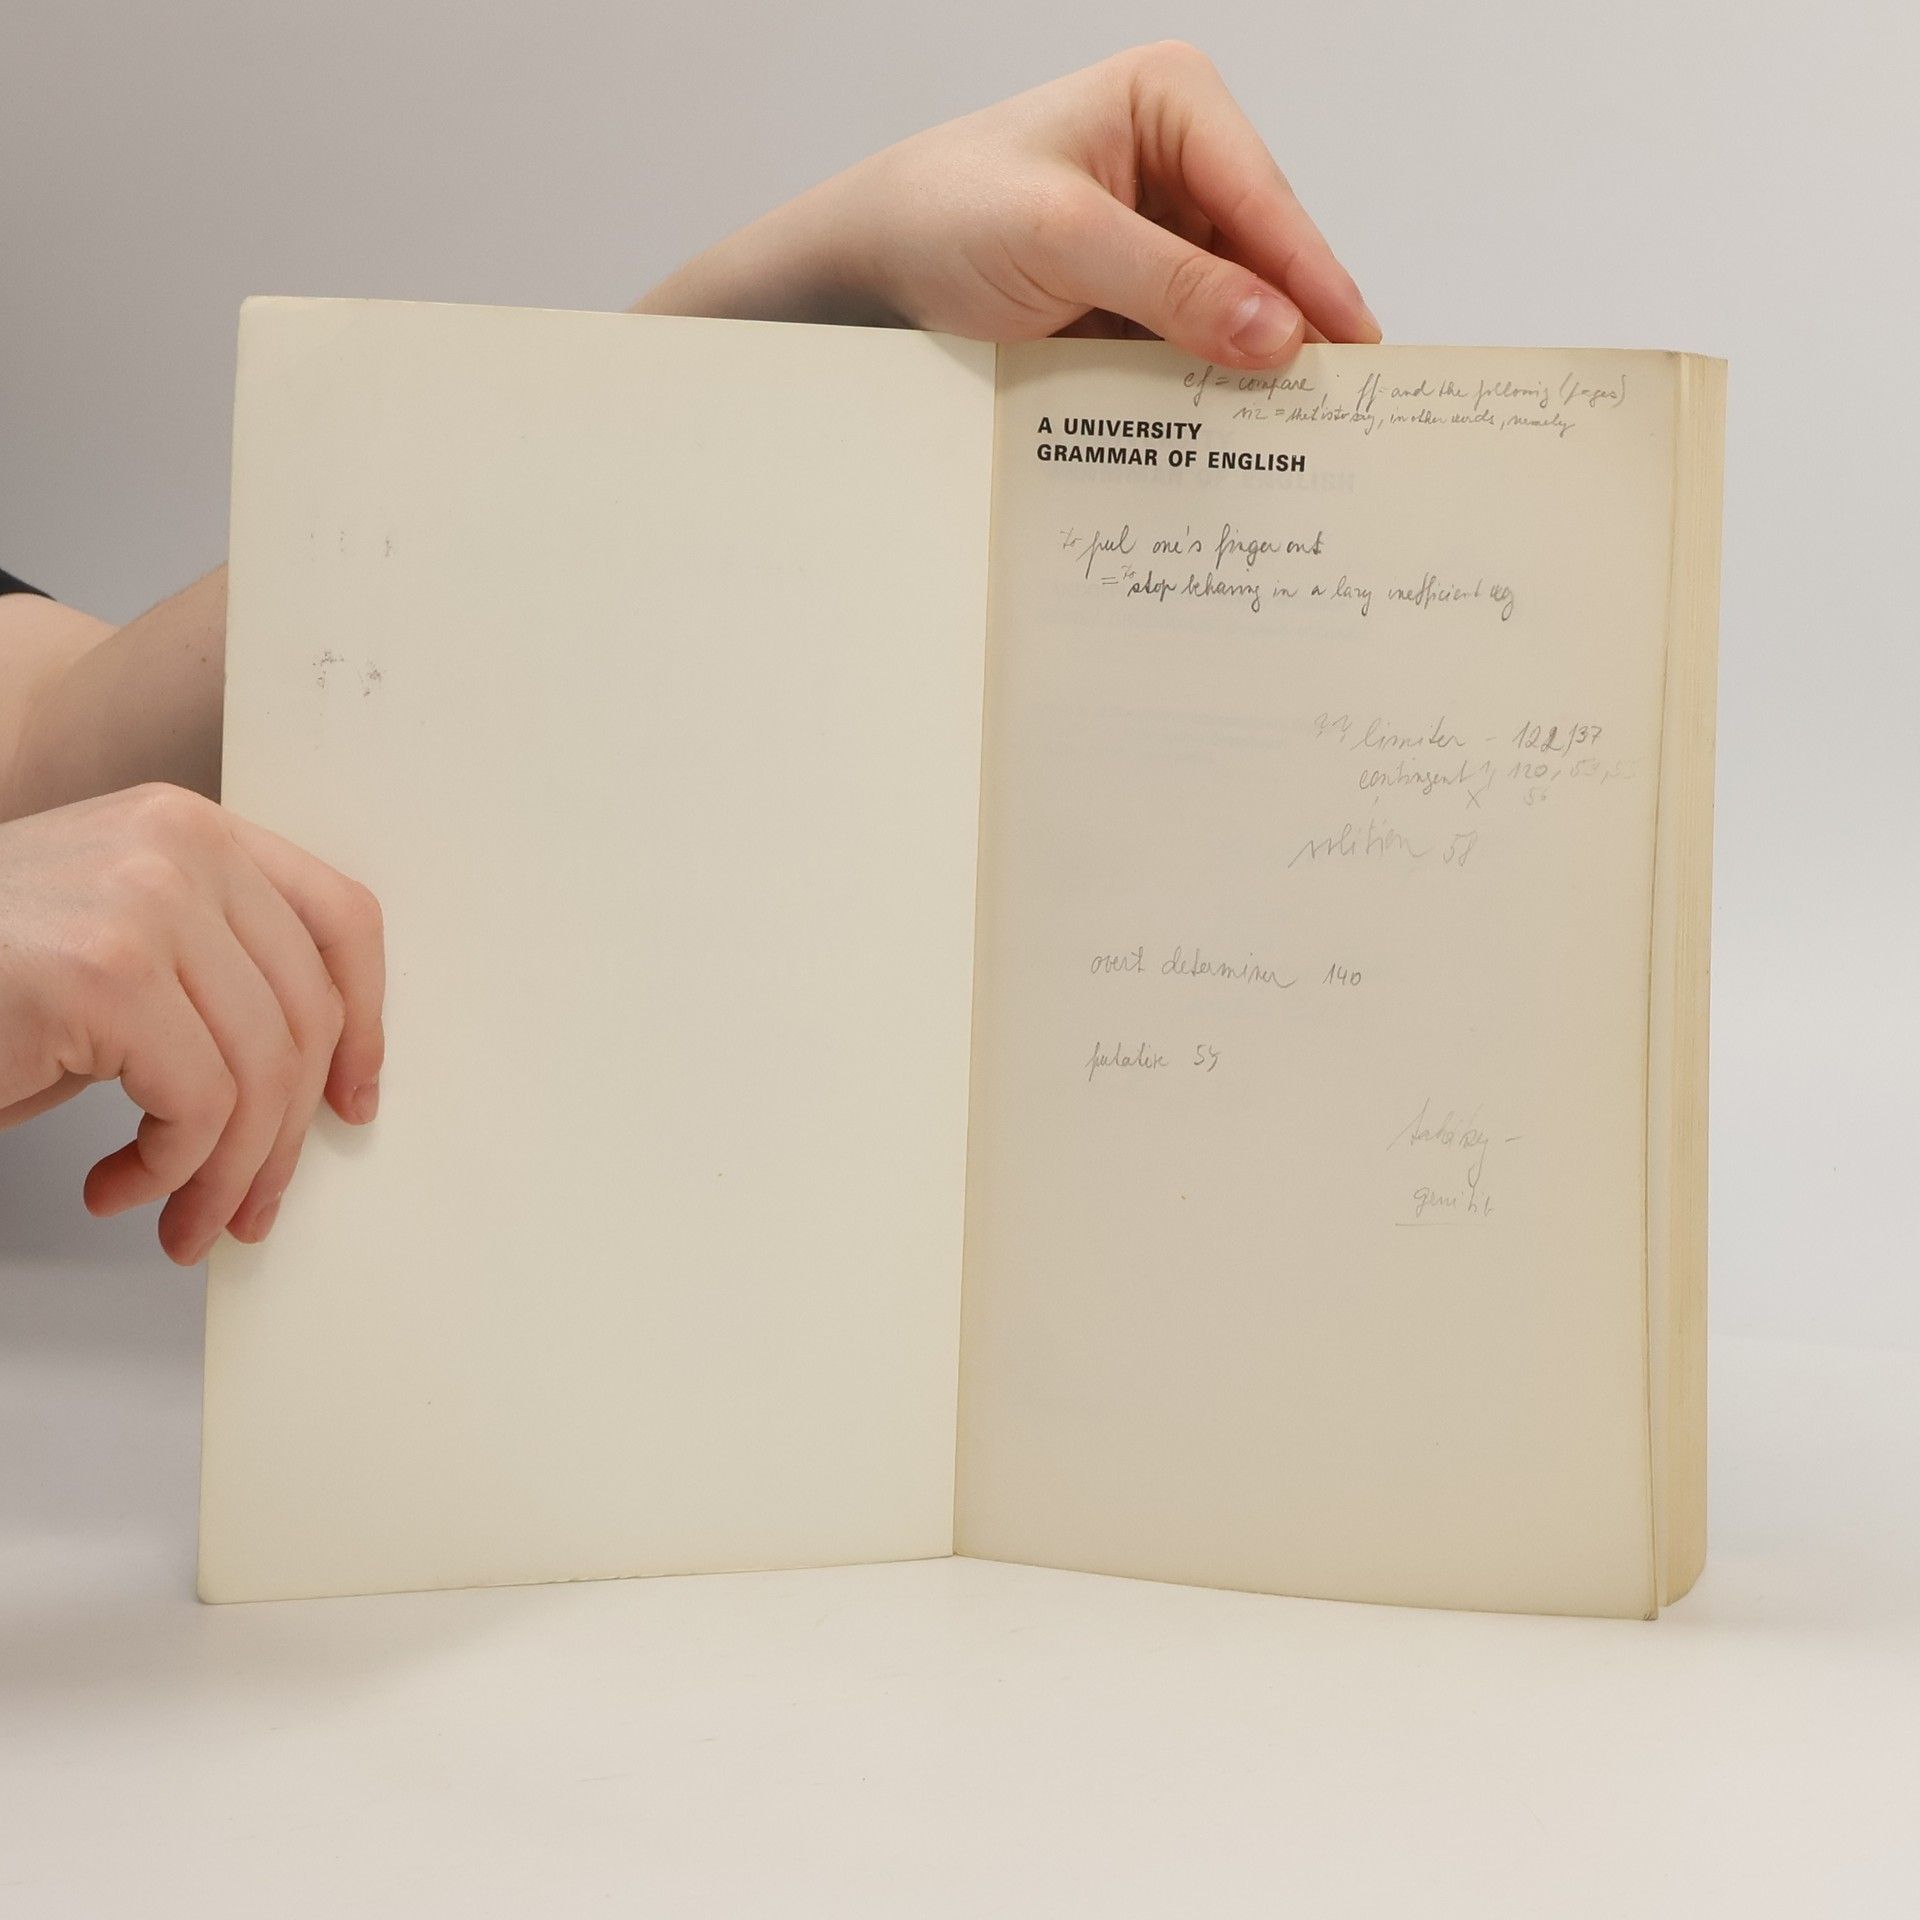 cf = compare; ff = and the following (pages)
viz = that is to say, in other words, namely
A UNIVERSITY
GRAMMAR OF ENGLISH
to pul one's finger out
= to stop behaving in a lazy inefficient way
?? limiter - 122, 137
contingent ? 120, 53, 55
x 56
volition 58
overt determiner 140
putative 54
genitiv